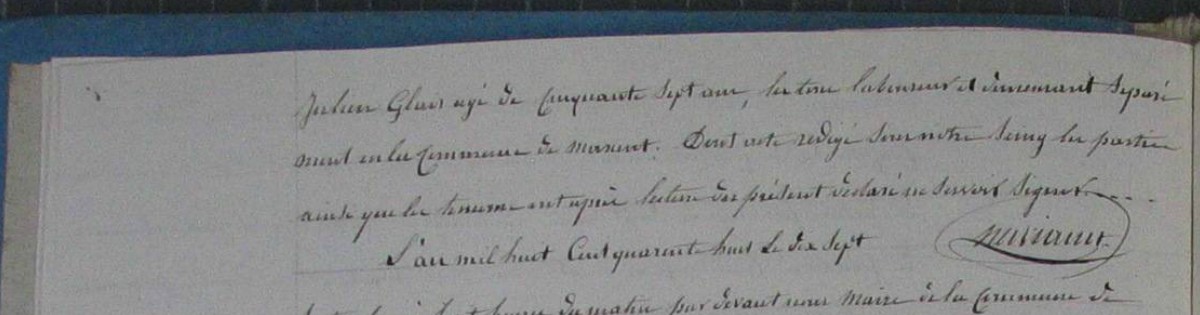 Julien Glais agé de Cinquante Sept ans, les tous laboureurs et demeurant Séparé
ment en la Commune de . Dont acte redigé sous notre Seing les parties
ainsi que les temoins ont après lecture du présent déclaré ne Savoir Signer
L'an mil huit Cent quarente huit Le dix Sept
huit heures du matin par devant nous Maire de la Commune de